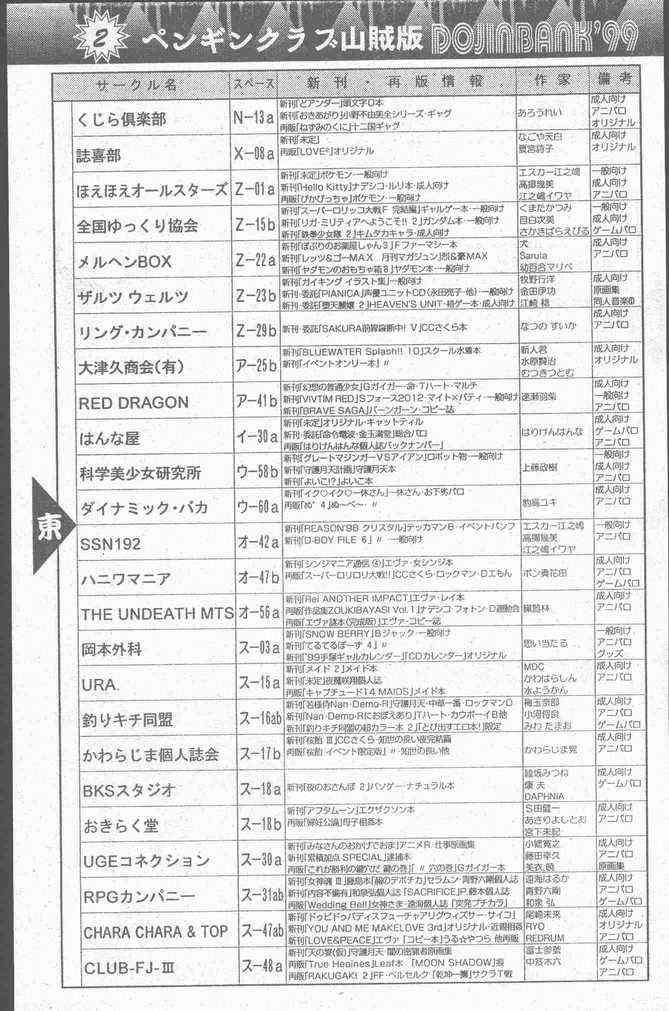 2 ペンギンクラブ山賊版 DOJINBANK'99
サークル名 スペース 新刊・再版情報 作家 備考
東
くじら倶楽部 N-13a あろうれい
新刊「どアンダー」頭文字D本 成人向け
新刊「おきあがり」小野不由美全シリーズ・ギャグ アニパロ
再版「ねずみのくに」十二国ギャグ オリジナル
誌喜部 X-08a
新刊「未定」 なごや天白 成人向け
再版「LOVE²」オリジナル 鷺宮詩子 オリジナル
ほえほえオールスターズ Z-01a
新刊「未定」ポケモン・一般向け エスカー江之嶋 一般向け
新刊「Hello Kitty」ナデシコ・ルリ本・成人向け 高擶幾美 成人向け
再版「ぴかぴっちゃ」ポケモン・一般向け 江之嶋イワヤ アニパロ
全国ゆっくり協会 Z-15b
新刊「スーパーロリッコ大戦F 完結編」ギャルゲー本・一般向け くまたかつみ 一般向け
新刊「リガ・ミリティアへようこそ!! 2」ガンダム本・一般向け 目白次美 成人向け
新刊「鉄拳少女隊 2」キムタカキャラ・成人向け さかきばらえびる ゲームパロ
メルヘンBOX Z-22a
新刊「ぽぷりのお薬屋しゃん3」Fファーマシー本 犬 成人向け
新刊「レッツ&ゴーMAX 月刊マガジュン」烈&豪MAX Sarula アニパロ
新刊「ヤダモンのおもちゃ箱8」ヤダモン本・一般向け 幼百合マリベ
ザルツ ウェルツ Z-23b
新刊「ガイキング イラスト集」一般向け 牧野行洋 成人向け
新刊・委託「PIANICA」声優ユニットCD(永田亮子・他)・一般向け 金田伊功 原画集
新刊・委託「堕天麗嬢 2」HEAVEN'S UNIT・格ゲー本・成人向け 江崎 格 同人音楽
リング・カンパニー Z-29b 新刊・委託「SAKURA前線横断中! V」CCさくら本 なつの すいか 成人向け
アニパロ
大津久商会(有) ア-25b
新刊「BLUEWATER Splash!! 10」スクール水着本 新人君 成人向け
新刊「イベントオンリー本」〃 水原賢治 オリジナル
むつきつとむ
RED DRAGON ア-41b 速瀬羽柴
新刊「幻想の普通少女」Gガイガー・命・Tハート・マルチ 成人向け
新刊「VIVTIM RED」Sフォース2012 マイト×パティ・一般向け 一般向け
新刊「BRAVE SAGA」バーンガーン・コピー誌 アニパロ
はんな屋 イ-30a はりけんはんな
新刊「未定」オリジナル・キャットテイル 成人向け
新刊・委託「命令電波・金玉満堂」総合パロ ゲームパロ
再版「はりけんはんな個人誌バックナンバー」 アニパロ
科学美少女研究所 ウ-58b 上藤政樹
新刊「グレートマジンガーVSアイアン」ロボット物・一般向け 一般向け
新刊「守護月天計画」守護月天本 成人向け
新刊「よいこ!?」よいこ本 アニパロ
ダイナミック・バカ ウ-60a 豹高ユキ
新刊「イク♡イク♡一休さん」一休さん・お下劣パロ 成人向け
再版「ぬ゛4」ぬ〜べ〜 〃 アニパロ
SSN192 オ-42a
新刊「REASON'98 クリスタル」テッカマンB・イベントパンフ エスカー江之嶋 一般向け
新刊「D-BOY FILE 6」〃・一般向け 高擶幾美 アニパロ
江之嶋イワヤ
ハニワマニア オ-47b ポン貴花田
新刊「シンジマニア通信④」エヴァ・女シンジ本 成人向け
再版「スーパーロリロリ大戦!!」CCさくら・ロックマン・Dエもん アニパロ
ゲームパロ
THE UNDEATH MTS オ-56a
新刊「Rei ANOTHER IMPACT」エヴァ・レイ本 成人向け
再版「作品集ZOUKIBAYASI Vol.1」ナデシコ フォトン D運動会 アニパロ
再版「エヴァ謎本(完成版)」エヴァ・コピー誌
岡本外科 ス-03a 思い当たる
新刊「SNOW BERRY」Bジャック・一般向け 一般向け
新刊「てるてるぼーず 4」〃 アニパロ
新刊「'99手塚ギャルカレンダー」「CDカレンダー」オリジナル グッズ
URA. ス-15a
新刊「メイド 2」メイド本 MDC 成人向け
新刊「未定」夜魔咲翔個人誌 かわはらしん アニパロ
再版「キャプチュード14 MAIDS」メイド本 水ようかん
釣りキチ同盟 ス-16ab
新刊「若様侍Nan-Demo-R」守護月天・中華一番・ロックマンD 梅玉奈部 成人向け
新刊「Nan-Demo-Rにおぼえあり」Tハート・カウボーイB他 小沼将良 アニパロ
新刊「釣りキチ同盟の超カラー本 2」「とび出すエロ本!」限定 みわ たまお ゲームパロ
かわらじま個人誌会 ス-17b かわらじま晃
新刊「桜飴 III」CCさくら・知世の良い夜完結篇 成人向け
再版「桜飴 イベント限定版」〃・知世の良い他 アニパロ
BKSスタジオ ス-18a 新刊「夜のおさんぽ 2」パソゲー・ナチュラル本
綾坂みつね 成人向け
康 天 ゲームパロ
DAPHNIA
おきらく堂 ス-18b
新刊「アフタムーン」エクザクソン本 S田健一 成人向け
再版「婦妊公論」母子相姦本 あさりよしとお アニパロ
宮下未紀
UGEコネクション ス-30a
新刊「みなさんのおかげでおま」アニメR・仕事原画集 小姫寛之 成人向け
新刊「累積加点 SPECIAL」逮捕本 藤田幸久 アニパロ
再版「これが勝利の鍵穴だ 鍵の巻」「〃 穴の巻」Gガイガー本 美衣 暁 原画集
RPGカンパニー ス-31ab
新刊「女神魂 III」藤島本「綿のデボチカ」セラムン・青野六剛個人誌 遠海はるか 成人向け
新刊「内容不備有」和泉弘個人誌「SACRIFICE」P.藤本個人誌 青野六南 アニパロ
再版「Wedding Bell」女神さま・遠海個人誌「突発プチカラ」 和泉 弘 ゲームパロ
CHARA CHARA & TOP ス-47ab
新刊「ドゥビドゥバディスフューチャアリングウィズザー・サイコ」 尾崎未来 成人向け
新刊「YOU AND ME MAKELOVE 3rd」オリジナル・近親相姦 RYO オリジナル
新刊「LOVE&PEACE」エヴァ「コピー本」うる☆やつら 他再版 REDRUM アニパロ
CLUB-FJ-III ス-48a
新刊「天の宴(仮)」守護月天・闇の出張者原画集 富士参號 成人向け
再版「True Heaines」Leaf本「MOON SHADOW」痕 中茂木六 ゲームパロ
再版「RAKUGAKI 2」FF・ベルセルク「乾坤一擲」サクラT戦 アニパロ